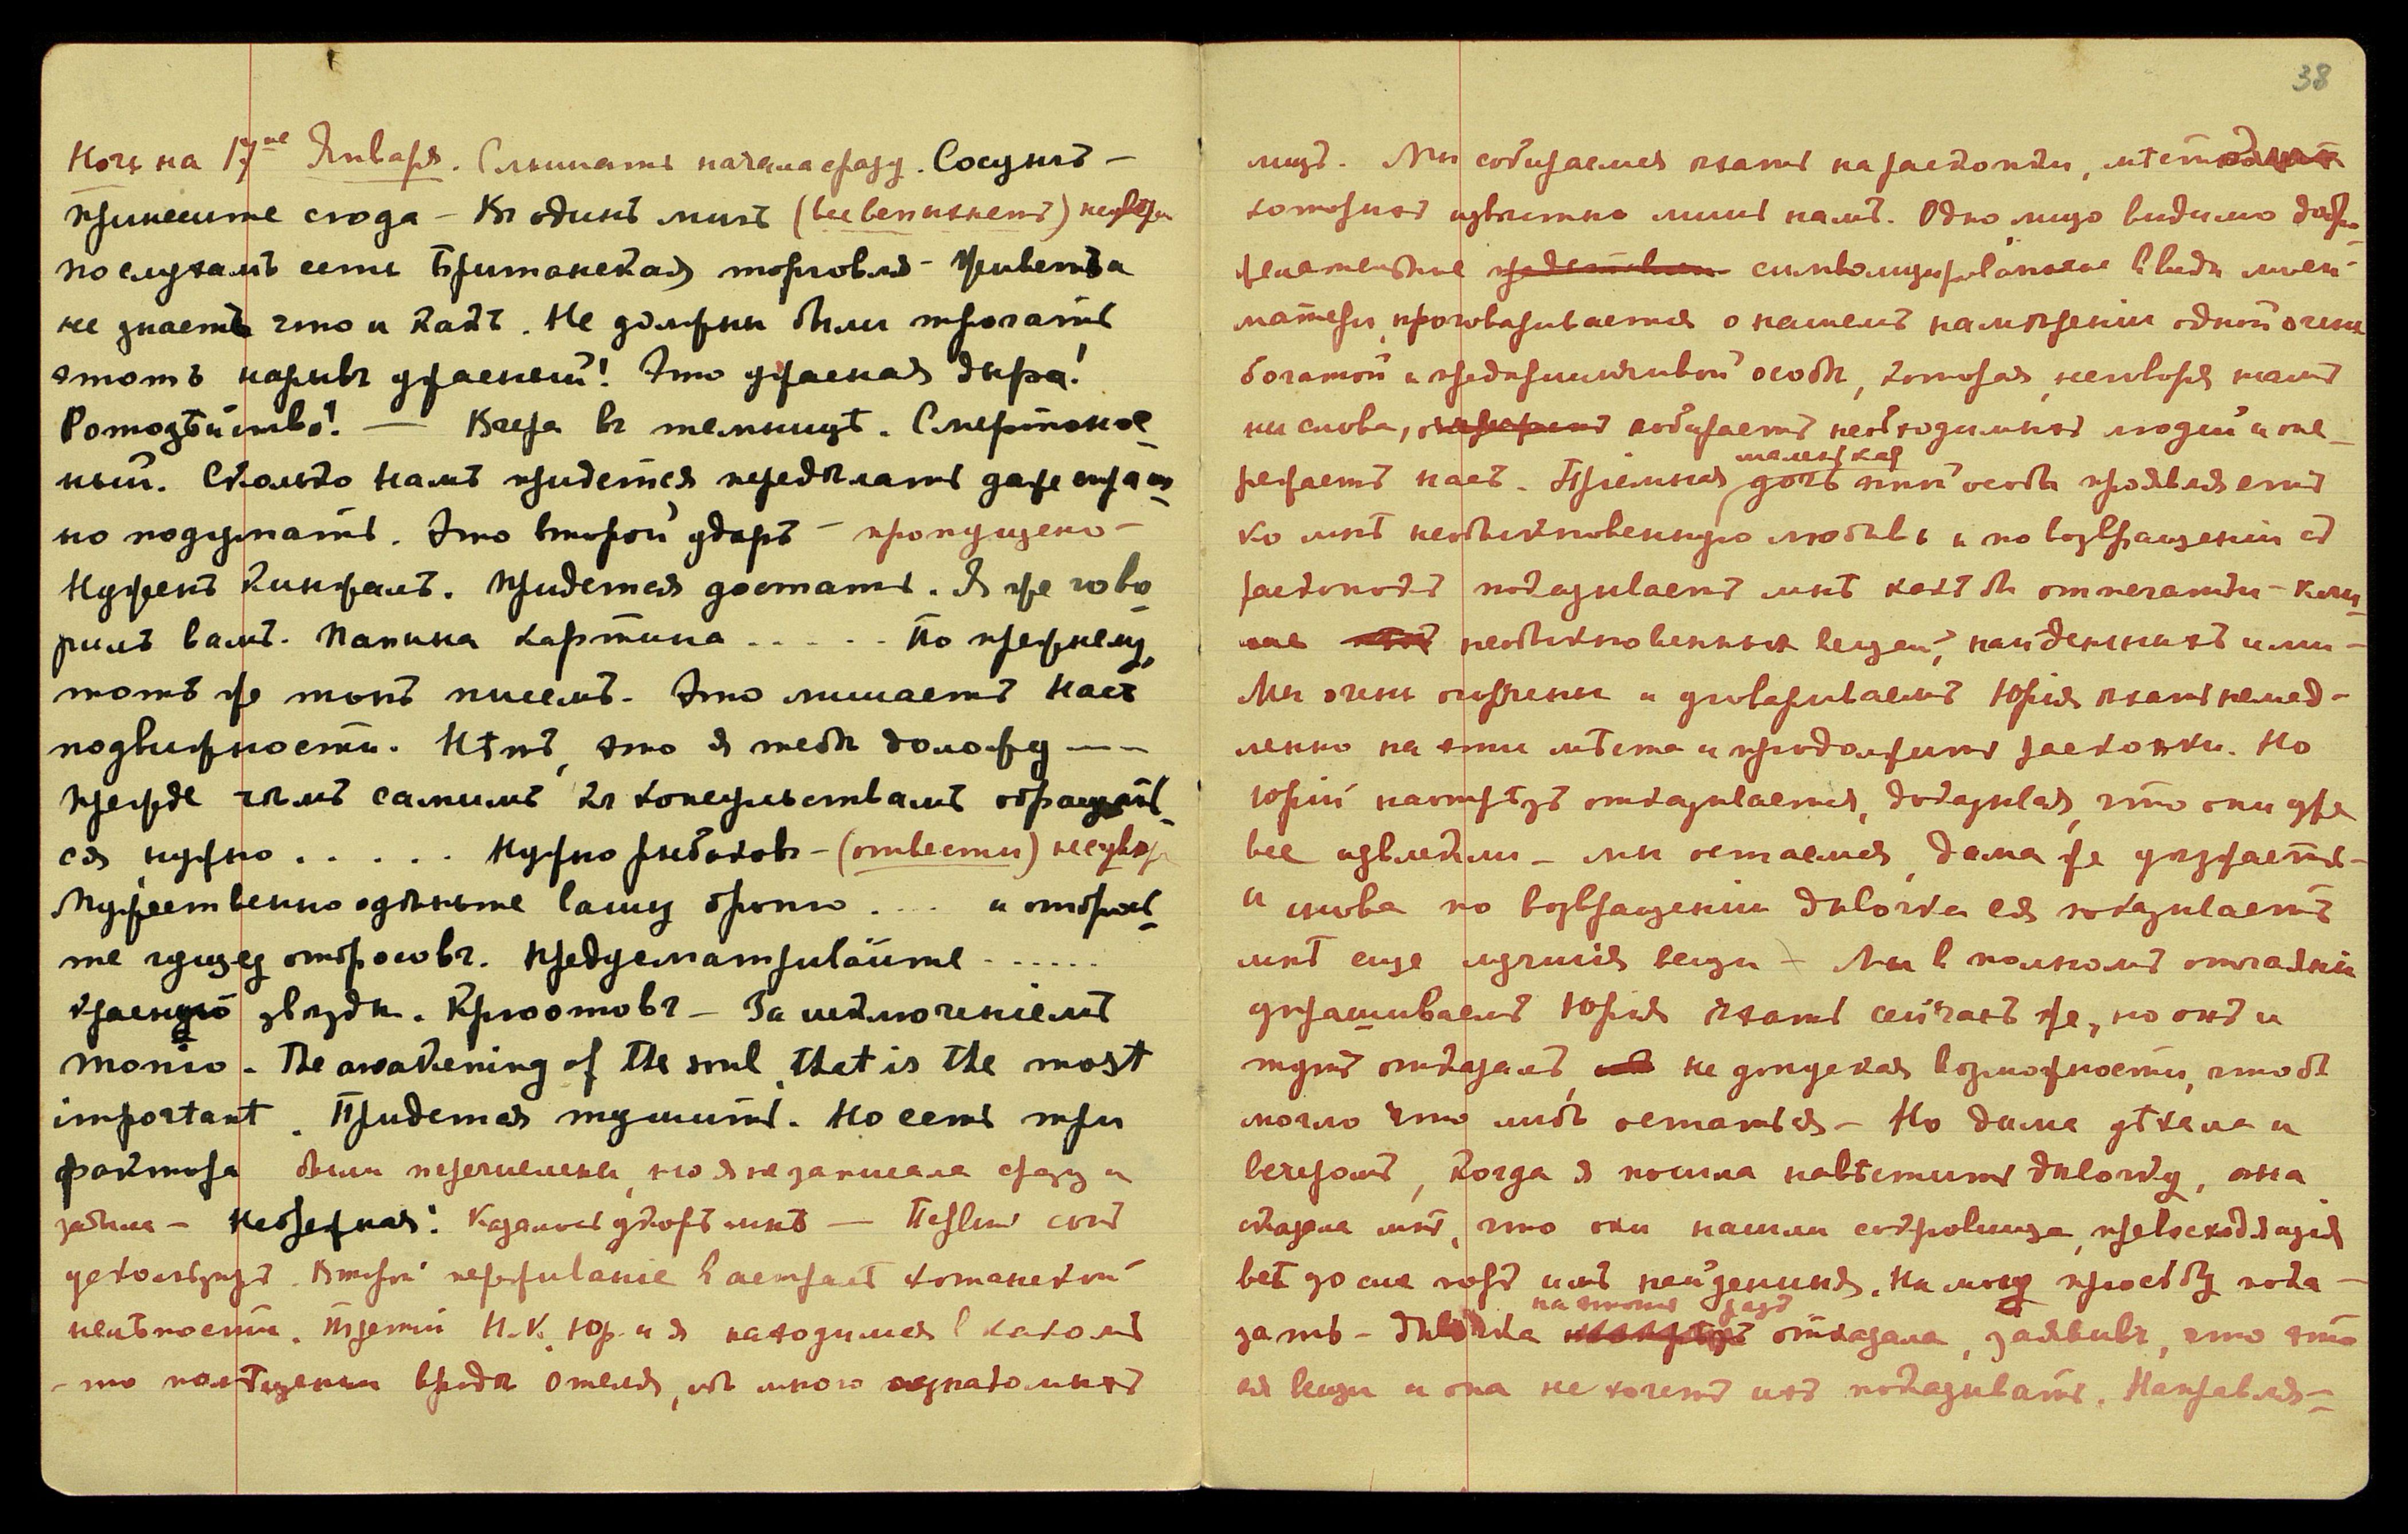 38
Ночь на 17ое Января. Слышать начала сразу. Сосунъ –
принесите сюда – Въ одинъ мигъ (все вспыхнетъ) не увѣр.
по слухамъ есть Британская торговля – Приветъ а
не знаетъ что и какъ. Не должны были трогать
этотъ нарывъ ужасный! Это ужасная дыра!
Ротозѣйство! — Вчера въ темницѣ. Смертонос-
ный. Сколько намъ придется передѣлать даже страш-
но подумать. Это второй ударъ – пропущено –
Нуженъ кинжалъ. Придется достать. Я же гово-
рилъ вамъ. Папина картина ..... По прежнему,
тотъ же тонъ писемъ. Это лишаетъ насъ
подвижности. Нѣтъ, это я тебѣ доложу – –
Прежде чѣмъ самимъ къ консульствамъ обращать-
ся нужно ..... Нужно рыбаковъ – (отвести) не увѣр.
Мужественно одѣньте вашу броню .... и отбрось-
те гущу отбросовъ. Предусматривайте ......
Красную звѣзду. – За исключеніемъ
Тоніо. The awakening of the soul, that is the most
important. Придется тушить. Но есть три
фактора были перечислены, но я не записала сразу и
забыла – Небрежная! Казалось укоръ мнѣ — Первый сонъ
ускользнулъ. Второй переживаніе въ астралѣ
. Третій Н.К. Юр. и я находимся въ какомъ
– то помѣщеніи вродѣ отеля, гдѣ много незнакомыхъ
лицъ. Мы собираемся ѣхать на раскопки, мѣста
которыхъ извѣстны лишь намъ. Одно лицо видимо добро-
желательное символизированное въ видѣ моей
матери, проговаривается о нашемъ намѣреніи одной очень
богатой и предпріимчивой особѣ, которая, не говоря намъ
ни слова, собираетъ необходимыхъ людей и опе-
режаетъ насъ. Пріемная маленькая дочь этой особы проявляетъ
ко мнѣ необыкновенную любовь и по возвращеніи съ
раскопокъ показываетъ мнѣ какъ бы отпечатки –
необыкновенныхъ вещей, найденныхъ ими –
Мы очень огорчены и уговариваемъ Юрія ѣхать немед-
ленно на эти мѣста и продолжить раскопки. Но
Юрій наотрѣзъ отказывается, доказывая, что они уже
все извлекли – мы остаемся, дама же уѣзжаетъ –
и снова по возвращеніи дѣвочка ея показываетъ
мнѣ еще лучшія вещи – Мы въ полномъ отчаяніи
упрашиваемъ Юрія ѣхать сейчасъ же, но онъ и
тутъ отказалъ, не допуская возможности, чтобъ
могло что либо остаться – Но дама уѣхала и
вечеромъ, когда я пошла навѣстить дѣвочку, она
сказала мнѣ, что они нашли сокровища, превосходящія
всѣ до сихъ поръ ими найденныя. На мою просьбу пока-
зать – дѣвочка на этотъ разъ отказала, заявивъ, что это
ея вещи и она не хочетъ ихъ показывать. Направля-